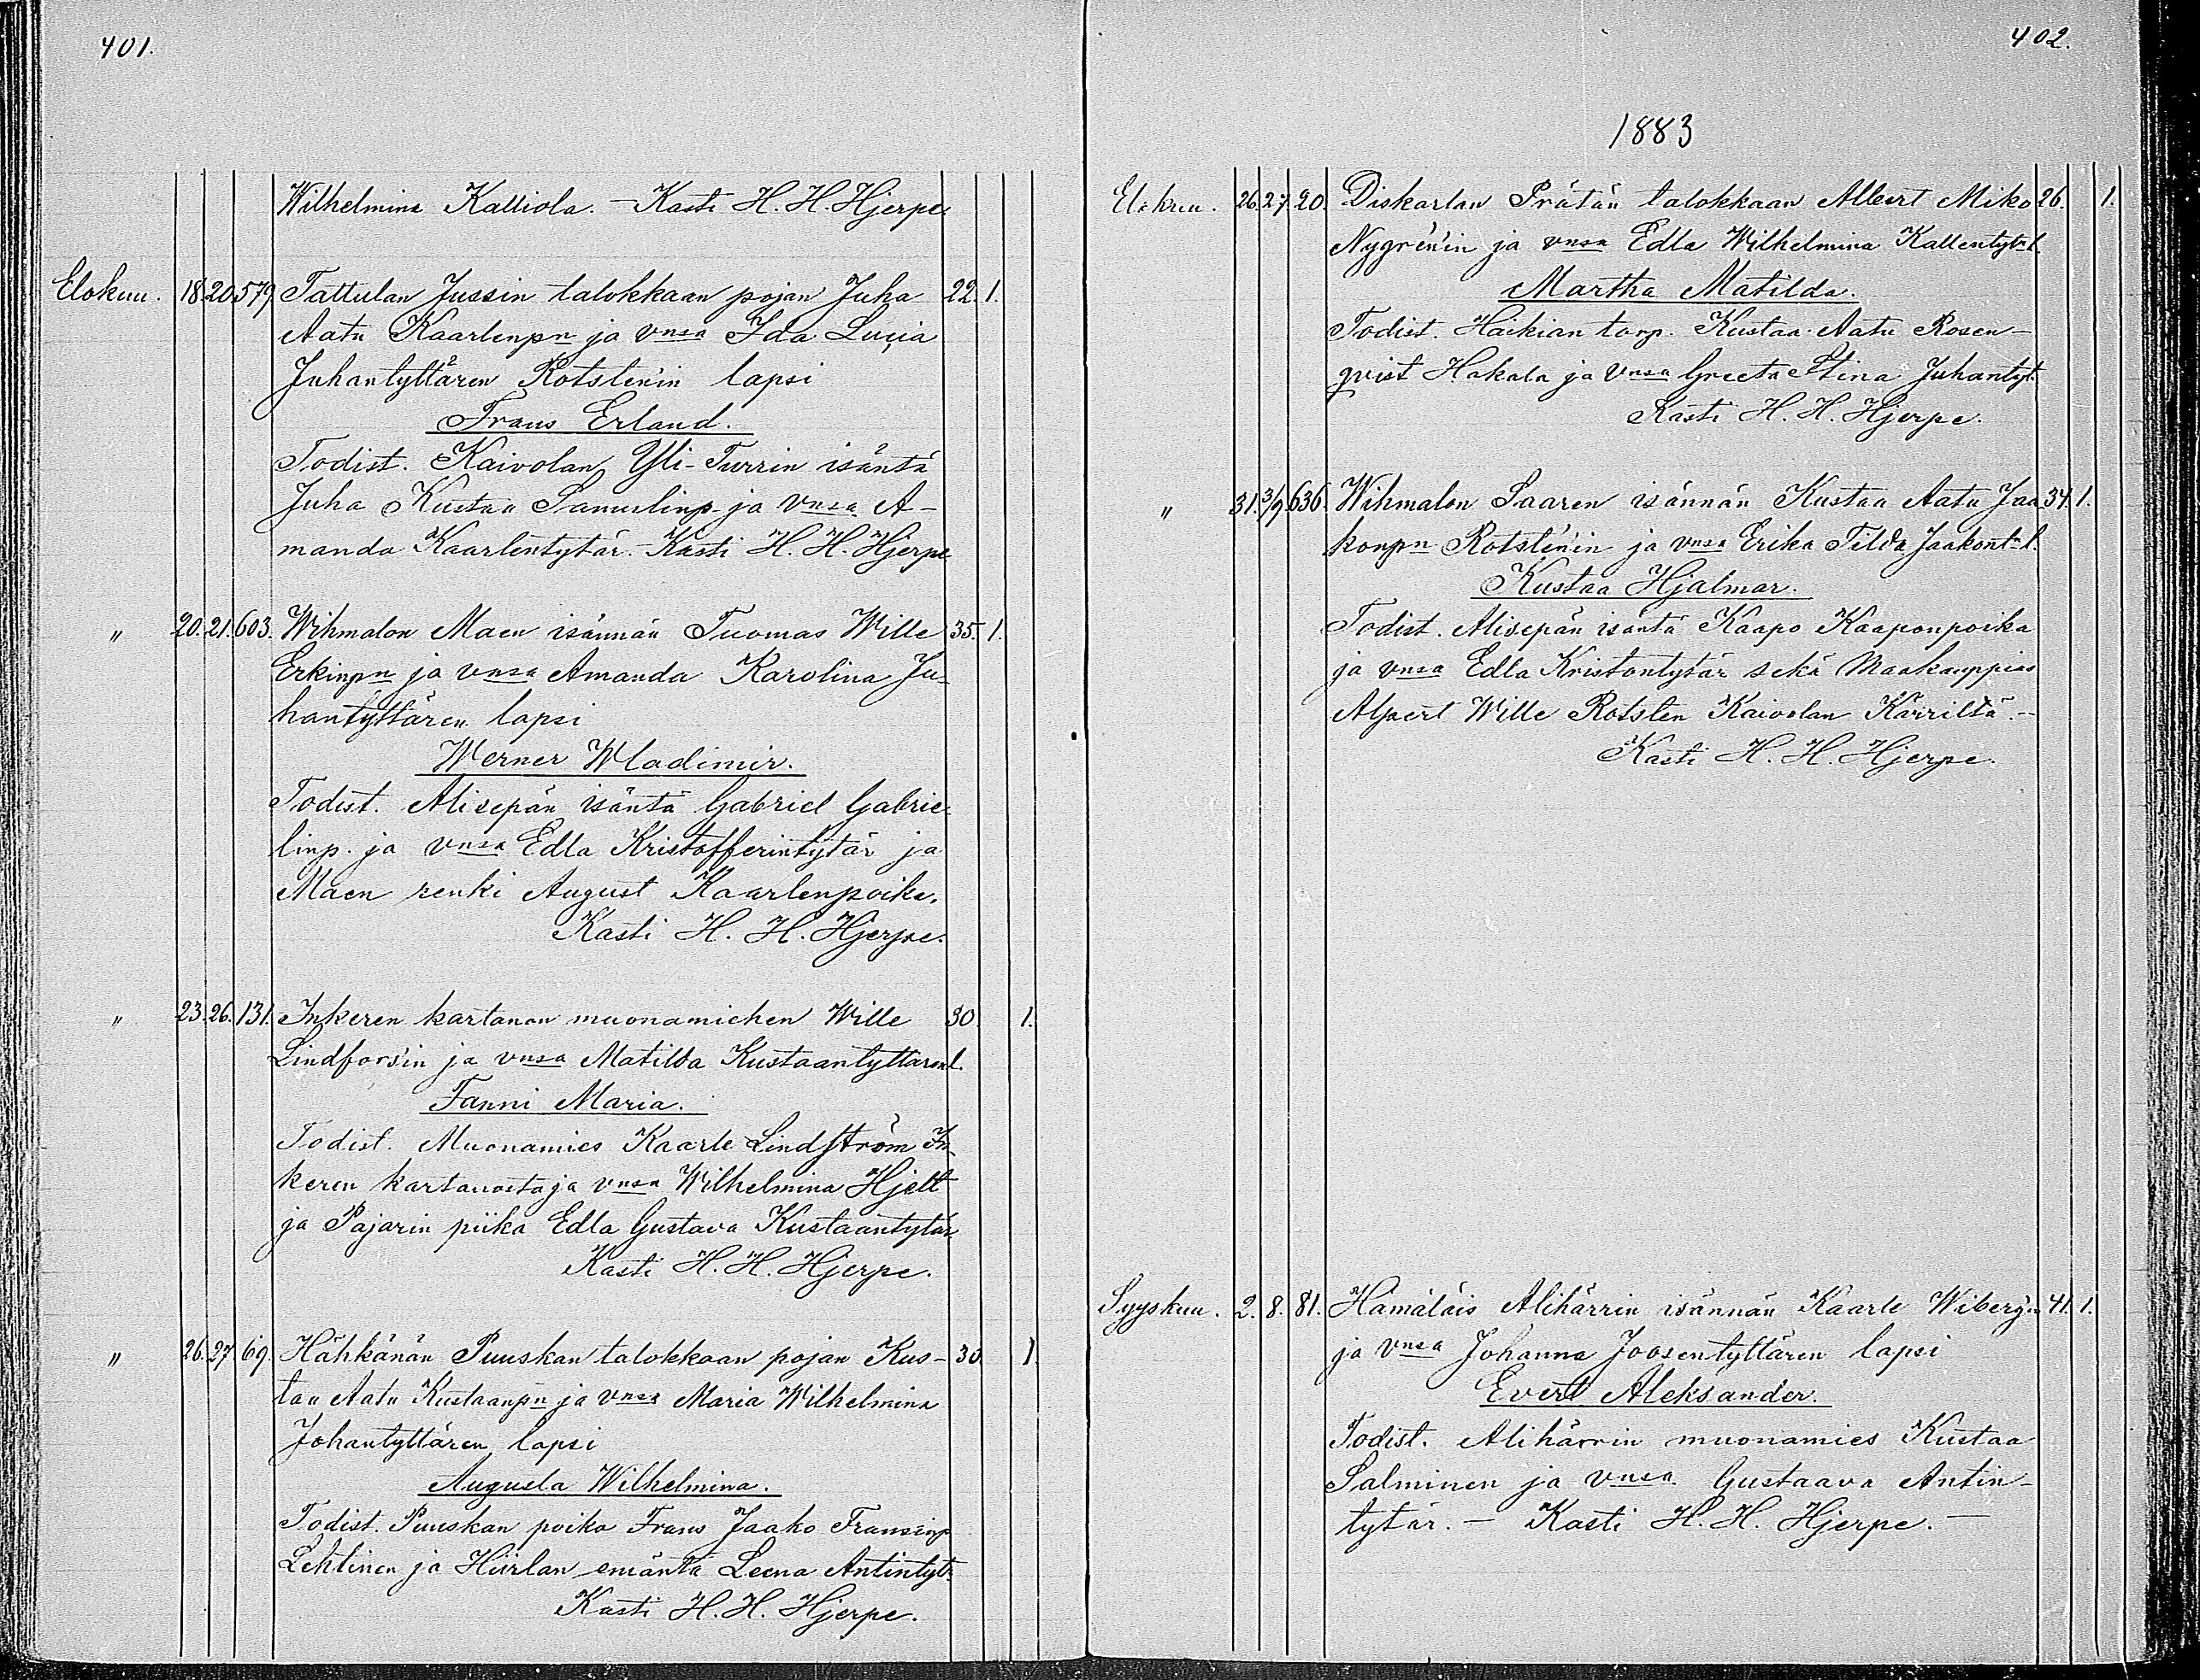 401.
Wilhelmina Kalliola. - Kasti H. H. Hjerpe.
Elokuu. 18. 20. 579. Tattulan Jussin talokkaan pojan Juha 22. 1.
Aatu Kaarlenpn ja vnsa Ida Lucia
Juhantyttären Rotsten'in lapsi
Frans Erland.
Todist. Kaivolan Yli-Turrin isäntä
Juha Kustaa Samulinp. ja vnsa A-
manda Kaarlentytär. Kasti H. H. Hjerpe
" 20. 21. 603. Wihmalon Maen isännän Tuomas Wille 35. 1.
Erkinpn ja vnsa Amanda Karolina Ju-
hantyttären lapsi
Werner Wladimir.
Todist. Alisepän isäntä Gabriel Gabrie-
linp. ja vnsa Edla Kristofferintytär ja
Maen renki August Kaarlenpoika.
Kasti H. H. Hjerpe.
" 23. 26. 131. Inkeren kartanon muonamiehen Wille 30. 1.
Lindfors'in ja vnsa Matilda Kustaantyttären l.
Fanni Maria.
Todist. Muonamies Kaarle Lindström In-
keren kartanosta ja vnsa Wilhelmina Hjelt
ja Pajarin piika Edla Gustava Kustaantytär
Kasti H. H. Hjerpe.
" 26. 27. 69. Hähkänän Puuskan talokkaan pojan Kus- 30. 1.
taa Aatu Kustaanpn ja vnsa Maria Wilhelmina
Johantyttären lapsi
Augusta Wilhelmina.
Todist. Puuskan poika Frans Jaako Fransinp
Lehtinen ja Hiirlan emäntä Leena Antintyt.
Kasti H. H. Hjerpe.
402.
1883
Elokuu. 26. 27. 20. Diskarlan Prätän talokkaan Albert Miko 26. 1.
Nygrén'in ja vnsa Edla Wilhelmina Kallentyt. l.
Martha Matilda.
Todist. Haikian torp. Kustaa Aatu Rosen-
qvist Hakala ja vnsa Greeta Stina Juhantyt.
Kasti H. H. Hjerpe.
" 31. 3/9 636. Wihmalon Saaren isännän Kustaa Aatu Jaa 34. 1.
konpn Rotstén'in ja vnsa Erika Tilda Jaakont. l.
Kustaa Hjalmar.
Todist. Alisepän isäntä Kaapo Kaaponpoika
ja vnsa Edla Kristontytär sekä Maakauppias
Alpert Wille Rotsten Kaivolan Kärriltä. -
Kasti H. H. Hjerpe.
Syyskuu. 2. 8. 81. Hämäläis Alihärrin isännän Kaarle Wiberg'in 41. 1.
ja vnsa Johanna Joosentyttären lapsi
Evert Aleksander.
Todist. Alihärrin muonamies Kustaa
Salminen ja vnsa Gustaava Antin-
tytär. - Kasti H. H. Hjerpe. -